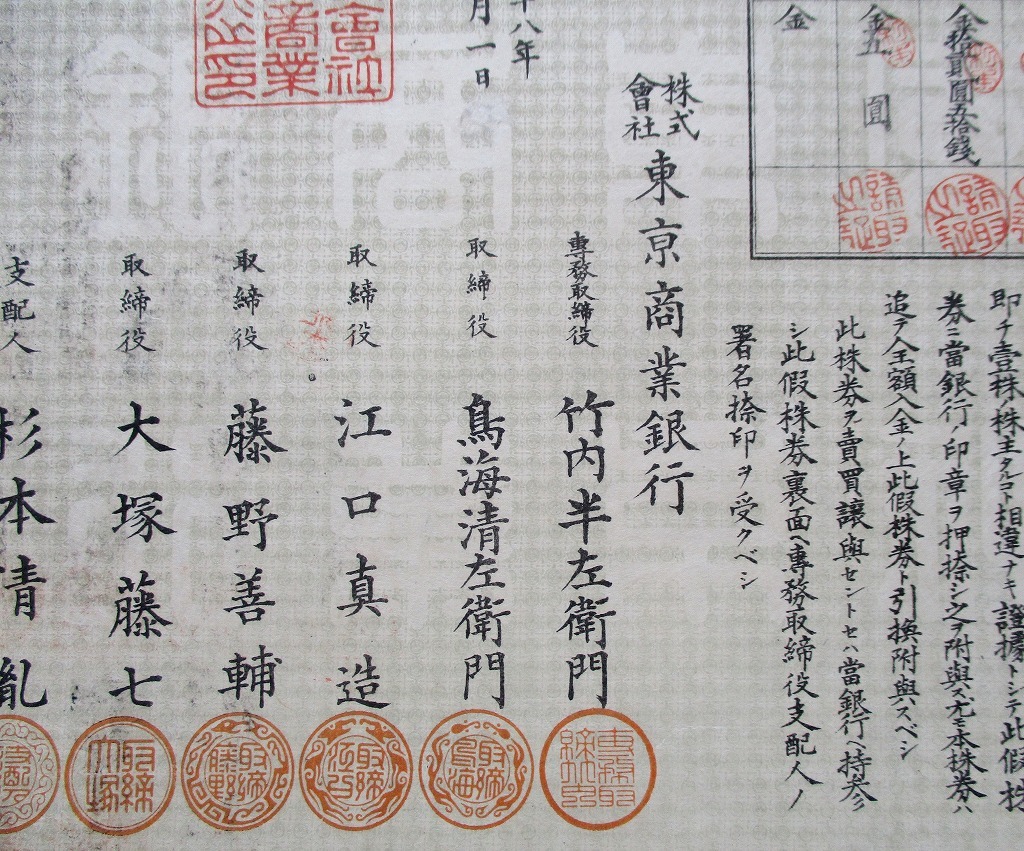 金拾貳圓五拾錢
金五圓
金
即チ壹株株主タルコト相違ナキ證據トシテ此假株
券ニ當銀行ノ印章ヲ押捺シ之ヲ附與ス尤モ本株券ハ
追テ全額入金ノ上此假株券ト引換附與スベシ
此株券ヲ賣買讓與セントセハ當銀行ヘ持參
シ此假株券裏面ヘ專務取締役支配人ノ
署名捺印ヲ受クベシ
株式會社東京商業銀行
十八年
月一日
專務取締役 竹内半左衛門
取締役 鳥海清左衛門
取締役 江口真造
取締役 藤野善輔
取締役 大塚藤七
支配人 杉本清胤
會社
商業
之印
請取之証
請取之証
取締役鳥海
取締役江口
取締役藤野
取締役大塚